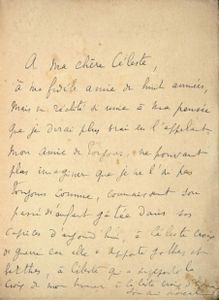 A ma chère Céleste,
à ma fidèle amie de huit années,
mais en réalité si unie à ma pensée
que je dirai plus vrai en l'appelant
mon amie de toujours, ne pouvant
plus imaginer que je ne l'ai pas
toujours connue, connaissant son
passé d'enfant gâtée dans ses
caprices d'aujourd'hui, à Céleste croix
de guerre car elle a supporté gothas et
berthas, à Céleste qui a supporté la
croix de mon humeur, à Céleste croix d'